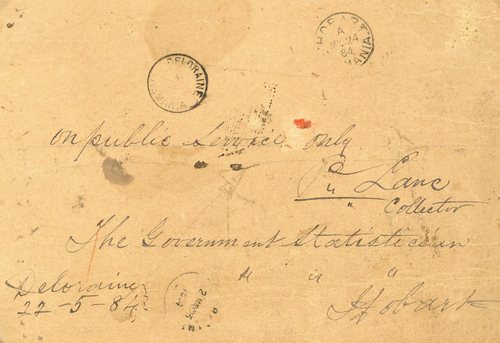 HOBART
A
24
84
MANIA
DELORAINE
on public service only
Lane
Collector
The Government Statistician
" " "
Deloraine
22-5-84
Hobart